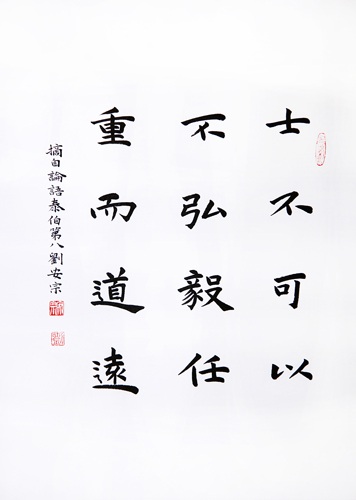 士不可以
不弘毅任
重而道遠
摘自論語泰伯第八劉安宗